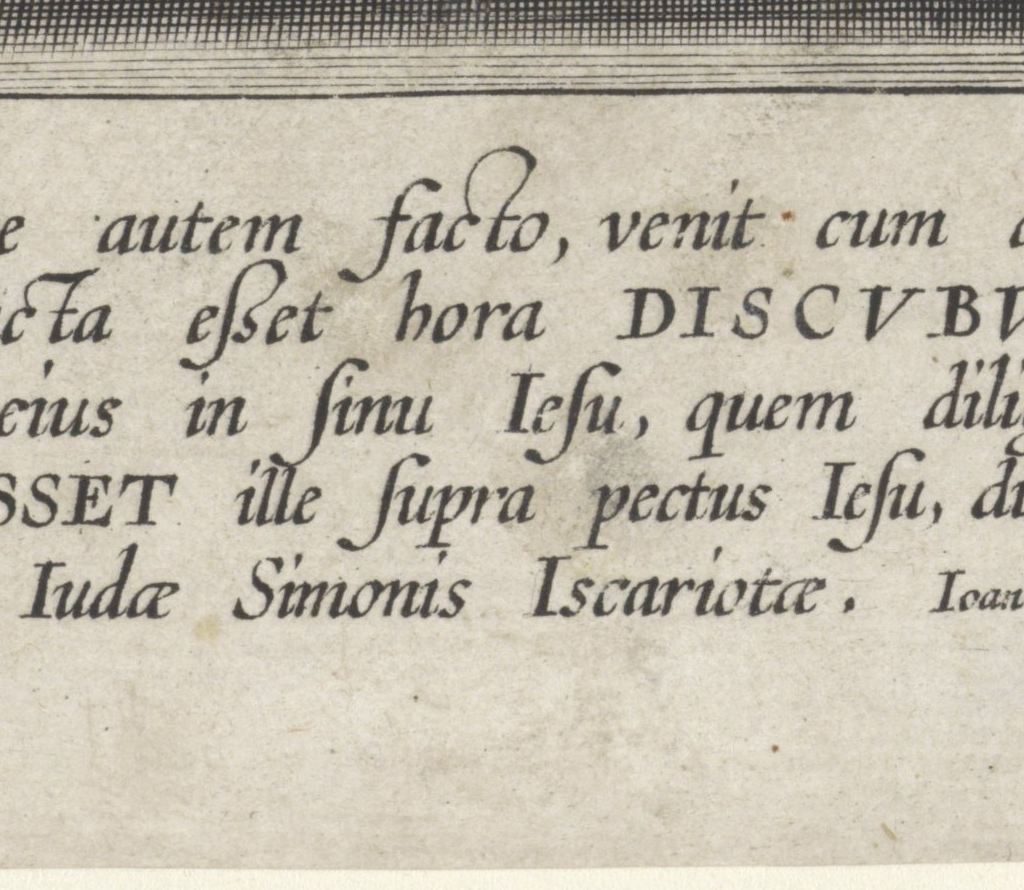 e autem facto, venit cum d
cta eſset hora DISCVBV
eius in ſinu Ieſu, quem dilig
SSET ille ſupra pectus Ieſu, di
Iudæ Simonis Iscariotæ. Ioan